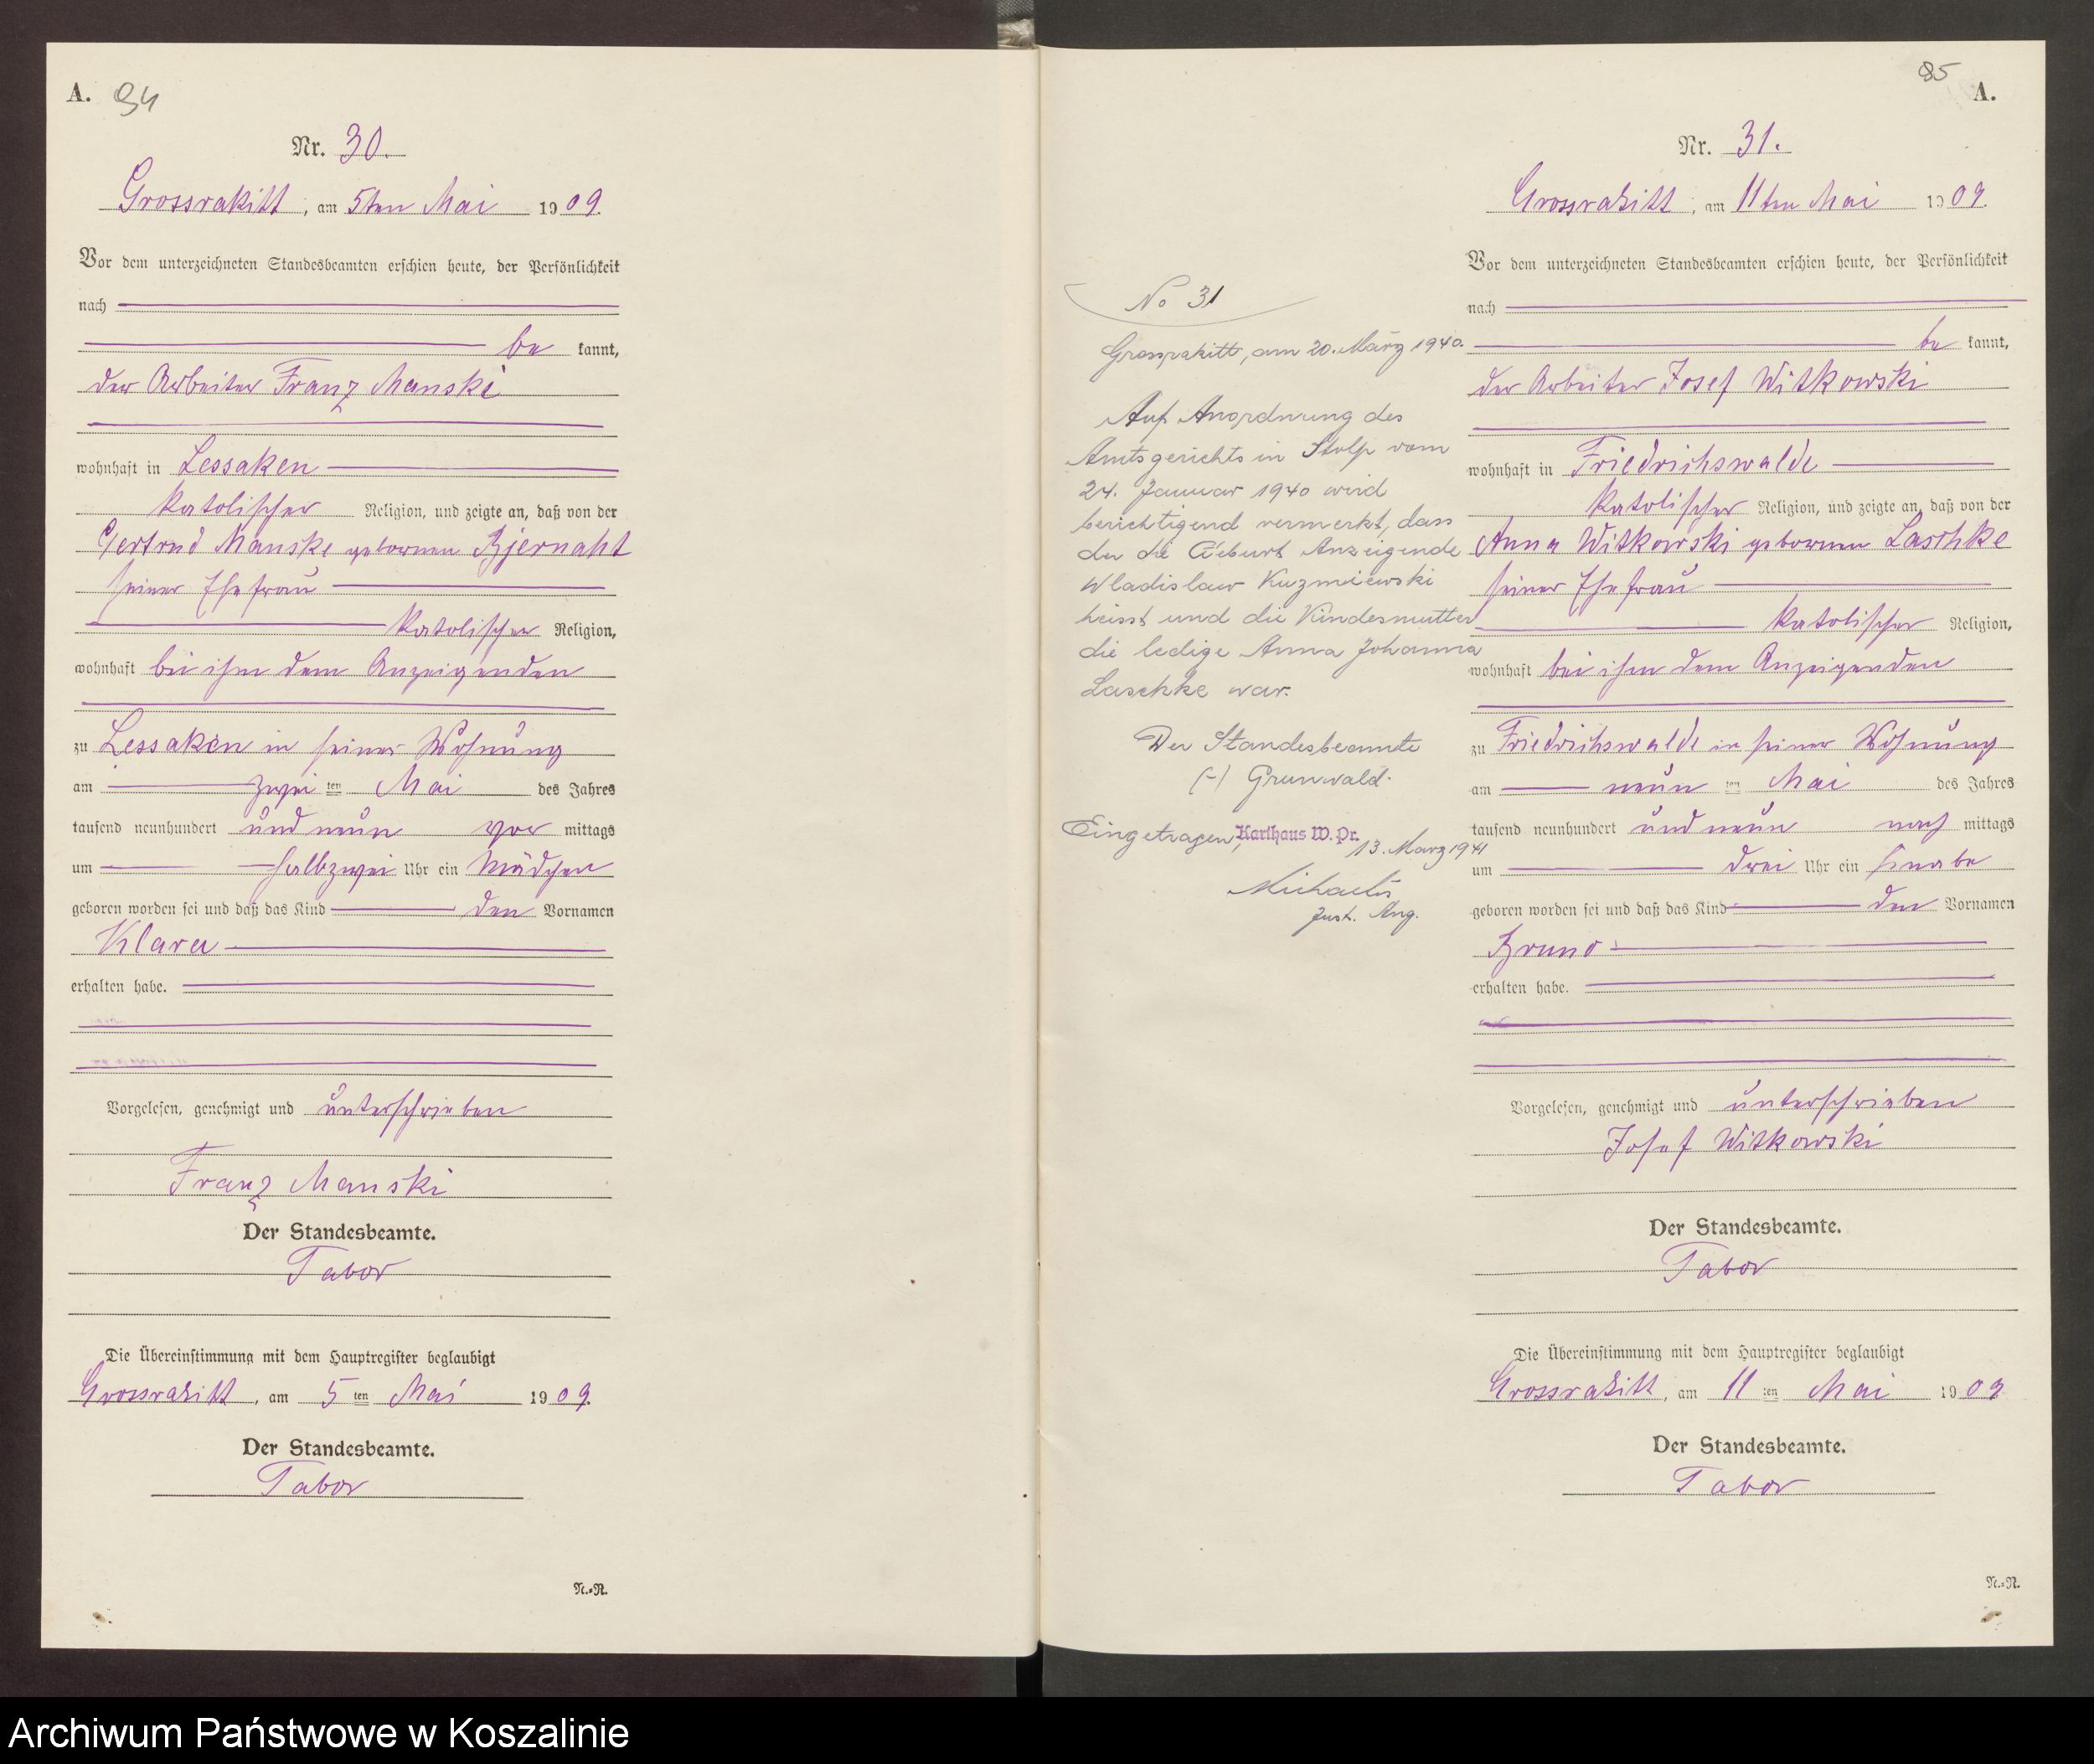 A. 94
Nr. 30.
Grossrakitt, am 5ten Mai 1909.
Vor dem unterzeichneten Standesbeamten erschien heute, der Persönlichkeit
nach
be kannt,
der Arbeiter Franz Manski
wohnhaft in Lessaken
katolischer Religion, und zeigte an, daß von der
Gertrud Manske geborenen Bjernaht
seiner Ehefrau
katolischer Religion,
wohnhaft bei ihm dem Anzeigenden
zu Lessaken in seiner Wohnung
am zwei ten Mai des Jahres
tausend neunhundert und neun vor mittags
um halbzwei Uhr ein Mädchen
geboren worden sei und daß das Kind den Vornamen
Klara
erhalten habe.
Vorgelesen, genehmigt und unterschrieben
Franz Manski
Der Standesbeamte.
Tabor
Die Übereinstimmung mit dem Hauptregister beglaubigt
Grossrakitt, am 5 ten Mai 1909.
Der Standesbeamte.
Tabor
N.=R.
No 31
Grossrakitt, am 20. März 1940.
Auf Anordnung des
Amtsgerichts in Stolp vom
24. Januar 1940 wird
berichtigend vermerkt, dass
der die Geburt Anzeigende
Wladislaw Kuzmiewski
heisst und die Kindesmutter
die ledige Anna Johanna
Laschke war.
Der Standesbeamte
(-) Grunwald.
Eingetragen, Karthaus W. Pr.
13. März 1941
Michaelis
Just. Ang.
85
A.
Nr. 31.
Grossrakitt, am 11ten Mai 1909.
Vor dem unterzeichneten Standesbeamten erschien heute, der Persönlichkeit
nach
be kannt,
der Arbeiter Josef Witkowski
wohnhaft in Friedrichswalde
katolischer Religion, und zeigte an, daß von der
Anna Witkowski geborenen Laschke
seiner Ehefrau
katolischer Religion,
wohnhaft bei ihm dem Anzeigenden
zu Friedrichswalde in seiner Wohnung
am neun ten Mai des Jahres
tausend neunhundert und neun nach mittags
um drei Uhr ein Knabe
geboren worden sei und daß das Kind den Vornamen
Bruno
erhalten habe.
Vorgelesen, genehmigt und unterschrieben
Josef Witkowski
Der Standesbeamte.
Tabor
Die Übereinstimmung mit dem Hauptregister beglaubigt
Grossrakitt, am 11 ten Mai 1909
Der Standesbeamte.
Tabor
N.=R.
Archiwum Państwowe w Koszalinie